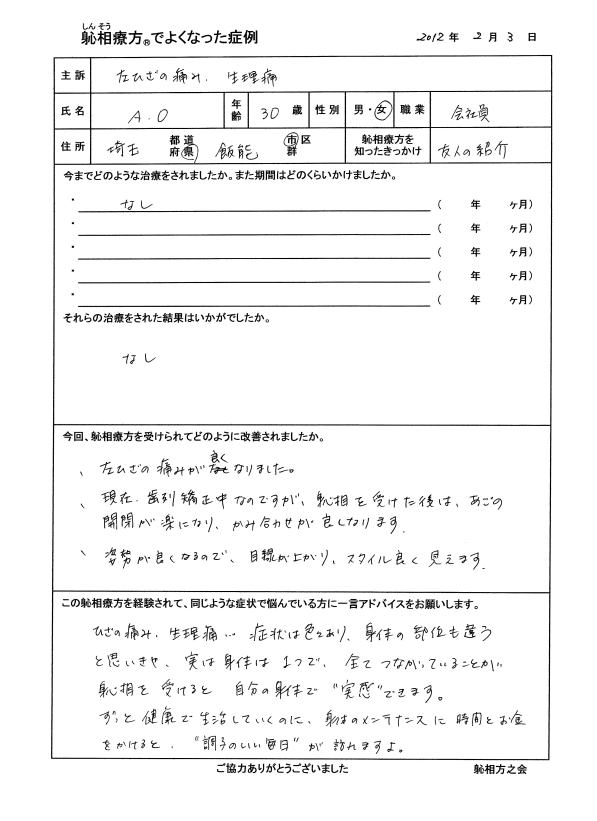 しんそう
躰相療方®でよくなった症例 2012年 2月 3日
主訴 左ひざの痛み、生理痛
氏名 A.O 年齢 30 歳 性別 男・女 職業 会社員
住所 埼玉 都道府県 飯能 市区群 躰相療方を知ったきっかけ 友人の紹介
今までどのような治療をされましたか。また期間はどのくらいかけましたか。
・ なし ( 年 ヶ月)
・ ( 年 ヶ月)
・ ( 年 ヶ月)
・ ( 年 ヶ月)
・ ( 年 ヶ月)
それらの治療をされた結果はいかがでしたか。
なし
今回、躰相療方を受けられてどのように改善されましたか。
、左ひざの痛みが良くなりました。
、現在、歯列矯正中なのですが、躰相を受けた後は、あごの
開閉が楽になり、かみ合わせが良くなります
、姿勢が良くなるので、目線が上がり、スタイル良く見えます。
この躰相療方を経験されて、同じような症状で悩んでいる方に一言アドバイスをお願いします。
ひざの痛み、生理痛… 症状は色々あり、身体の部位も違う
と思いきや、実は身体は1つで、全てつながっていることが
躰相を受けると自分の身体で"実感"できます。
ずっと健康で生活していくのに、身体のメンテナンスに時間とお金
をかけると、"調子のいい毎日"が訪れますよ。
ご協力ありがとうございました 躰相方之会